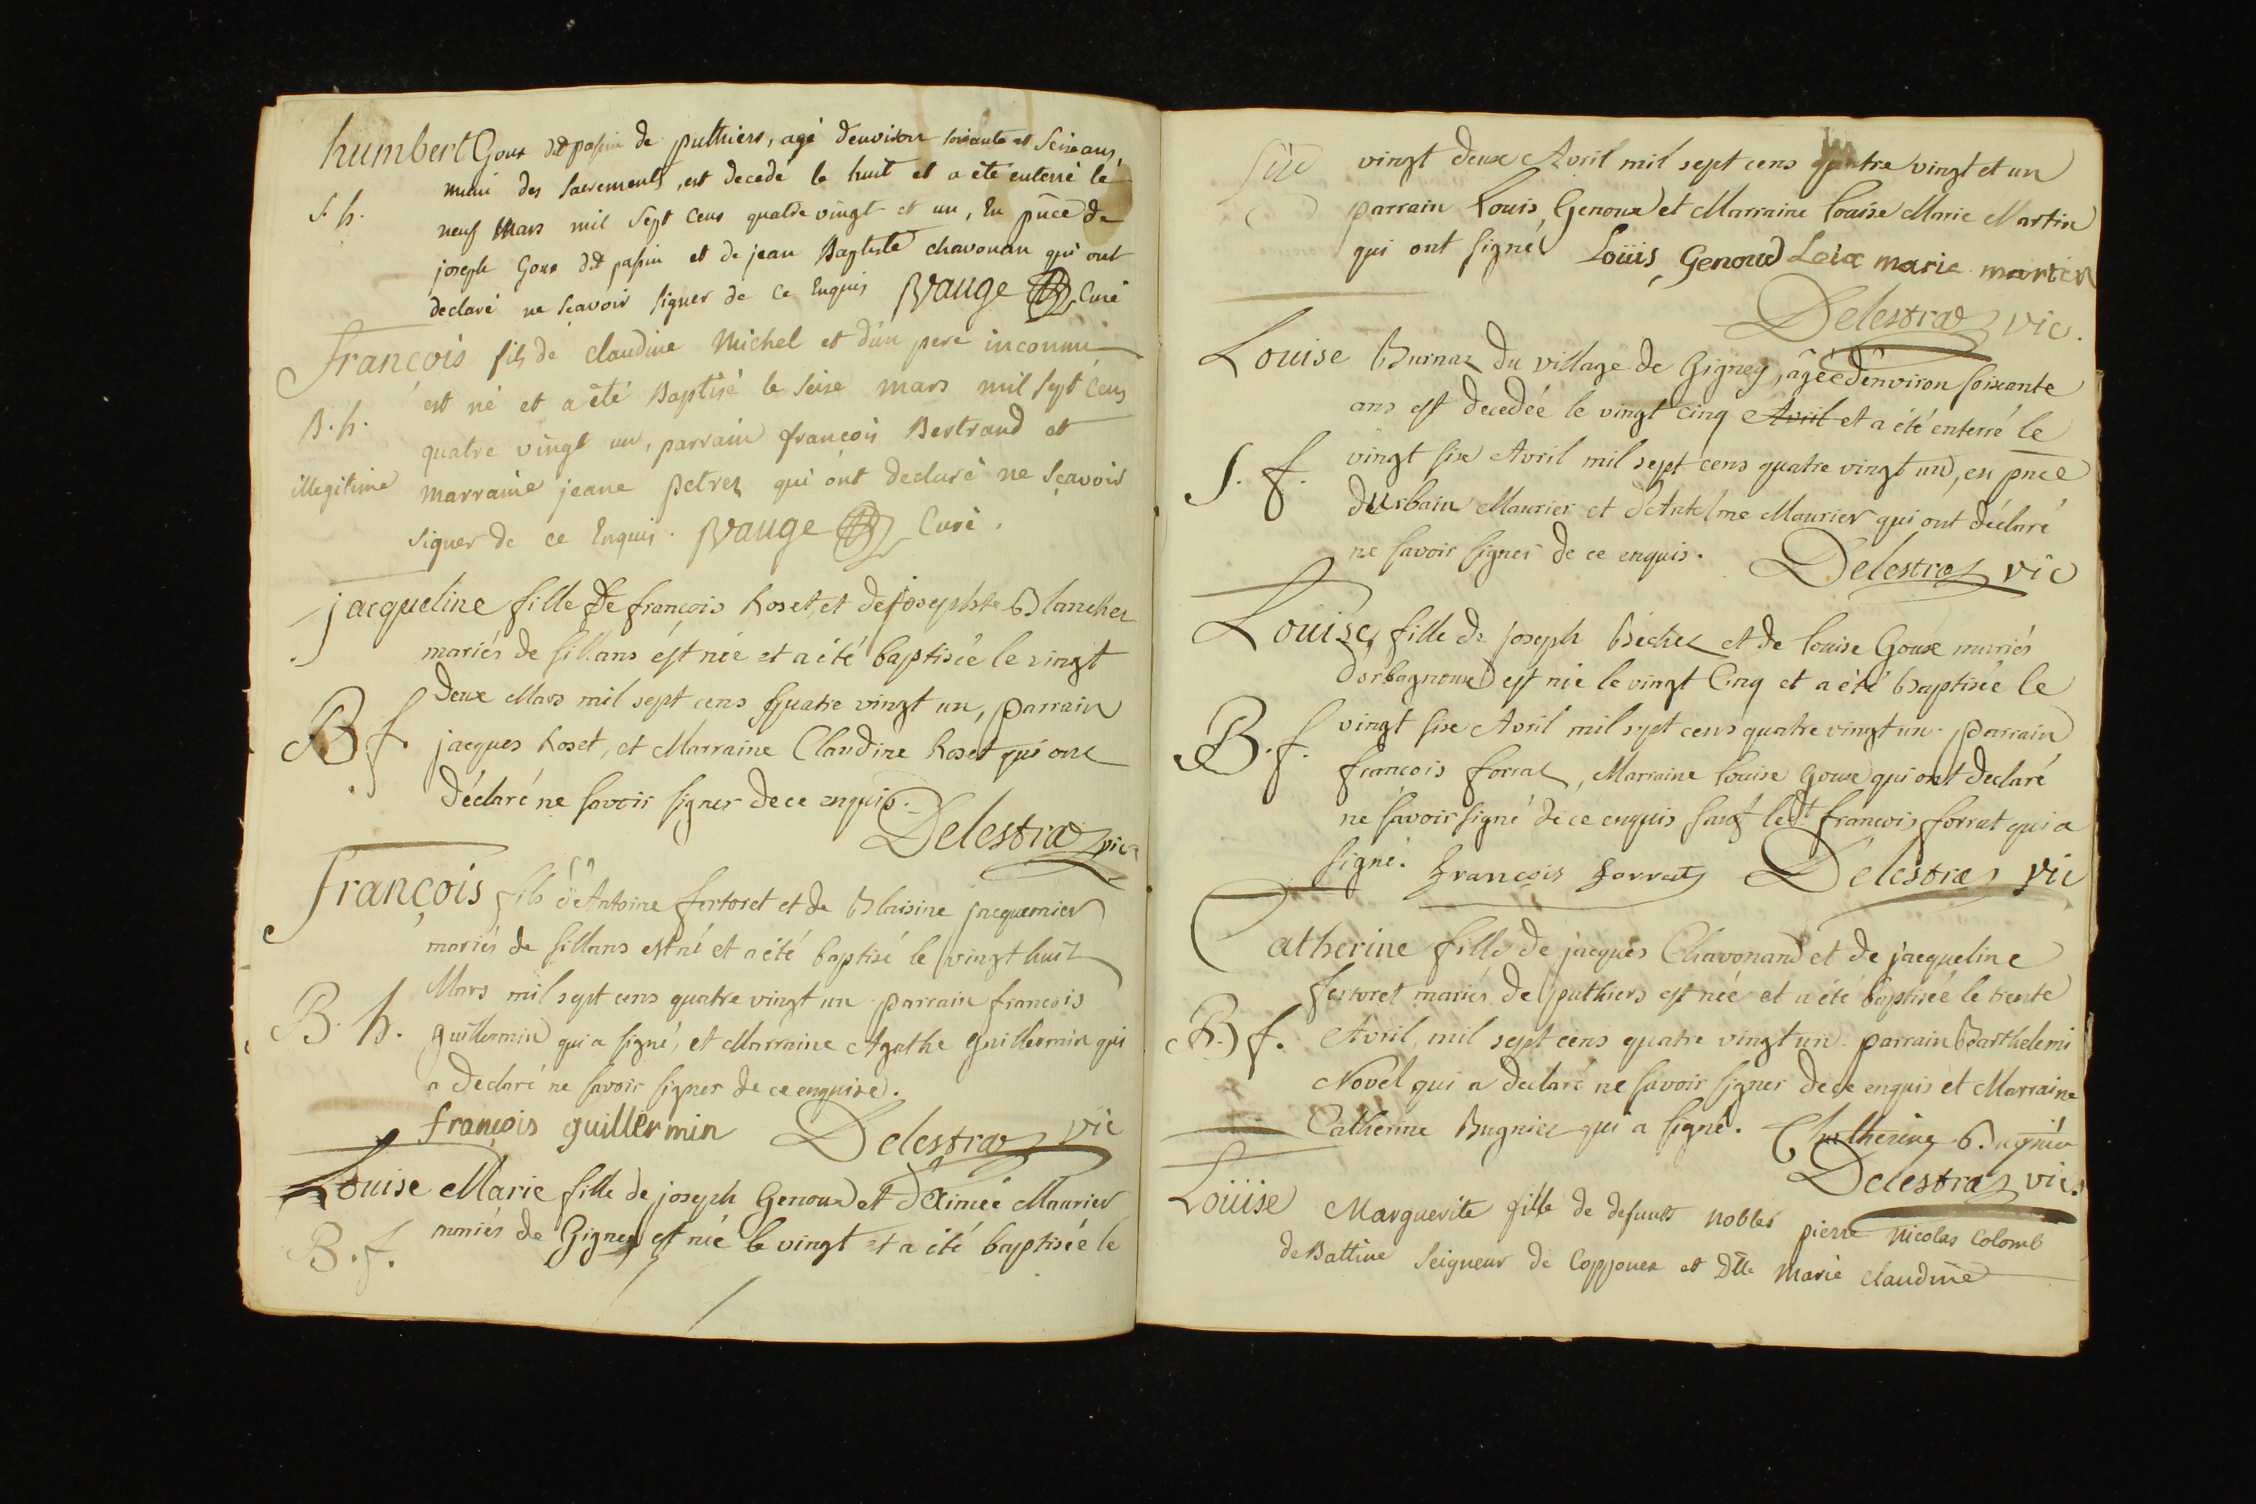 humbert Goux dit pasin de puthiers, agé d'environ soixante et seise ans,
muni des sacrements, est decedé le huit et a été enterré le
S. h.
neuf mars mil sept cens quatre vingt et un, En pñce de
joseph Goux dit pasin et de jean Baptiste chavonan qui ont
declaré ne sçavoir signer de ce Enquis Vauge Curé
françois fils de claudine Michel et d'un pere inconnu
est né et a été Baptisé le seise mars mil sept cens
B. h.
quatre vingt un, parrain françois Bertrand et
illegitime
marraine jeane petrez qui ont declaré ne sçavoir
signer de ce Enquis. Vauge Curé.
jacqueline fille de françois Roset, et de josephte Blanchet
mariés de sillans ést née et a été baptisée le vingt
deux Mars mil sept cens quatre vingt un, parrain
B f.
jacques Roset, et Marraine Claudine Roset qui ont
déclaré ne savoir signer de ce enquis.
Delestraz vic
françois fils d'Antoine fertoret et de Blaisine jacquemier
mariés de sillans est né et a été baptisé le vingt huit
Mars mil sept cens quatre vingt un. parrain françois
B. h.
guillermin qui a signé, et Marraine Agathe guillermin qui
a declaré ne savoir signer de ce enquise.
françois guillermin Delestraz vic
Louise Marie fille de joseph Genoux et d'Aimée Maurier
mariés de Gigney est née le vingt et a été baptisée le
B. f.
vingt deux Avril mil sept cens quatre vingt et un
parrain Louis Genoux et Marraine Louise Marie Martin
qui ont signé Loüis Genoud Loise marie martin
Delestraz vic.
Louise Burnaz du village de Gigney, âgée d'environ soixante
ans est decedée le vingt cinq Avril et a été enterré le
S. f.
vingt six Avril mil sept cens quatre vingt un, en pñce
d'urbain Maurier et d'Antelme Maurier qui ont déclaré
ne savoir signer de ce enquis. Delestraz vic
Louise, fille de joseph béchet et de louise Goux mariés
d'orbagnoux est née le vingt Cinq et a été Baptisée le
B. f.
vingt six Avril mil sept cens quatre vingt un. parrain
françois forrat, Marraine louise goux qui ont declaré
ne savoir signé de ce enquis sauf ledt françois forrat qui a
signé. françois forrat Delestraz vic
Catherine fille de jacques Chavonand et de jacqueline
fertoret mariés de puthiers est née et a été baptisée le trente
B. f.
Avril, mil sept cens quatre vingt un. parrain Barthelemi
Novel qui a declaré ne savoir signer de ce enquis et Marraine
Catherine Bugnier qui a signé. Chatherine Bugnier
Delestraz vic.
Loüise Marguerite fille de defunts nobles pierre Nicolas Colomb
de Battine Seigneur de Copponex et Dlle Marie Claudine